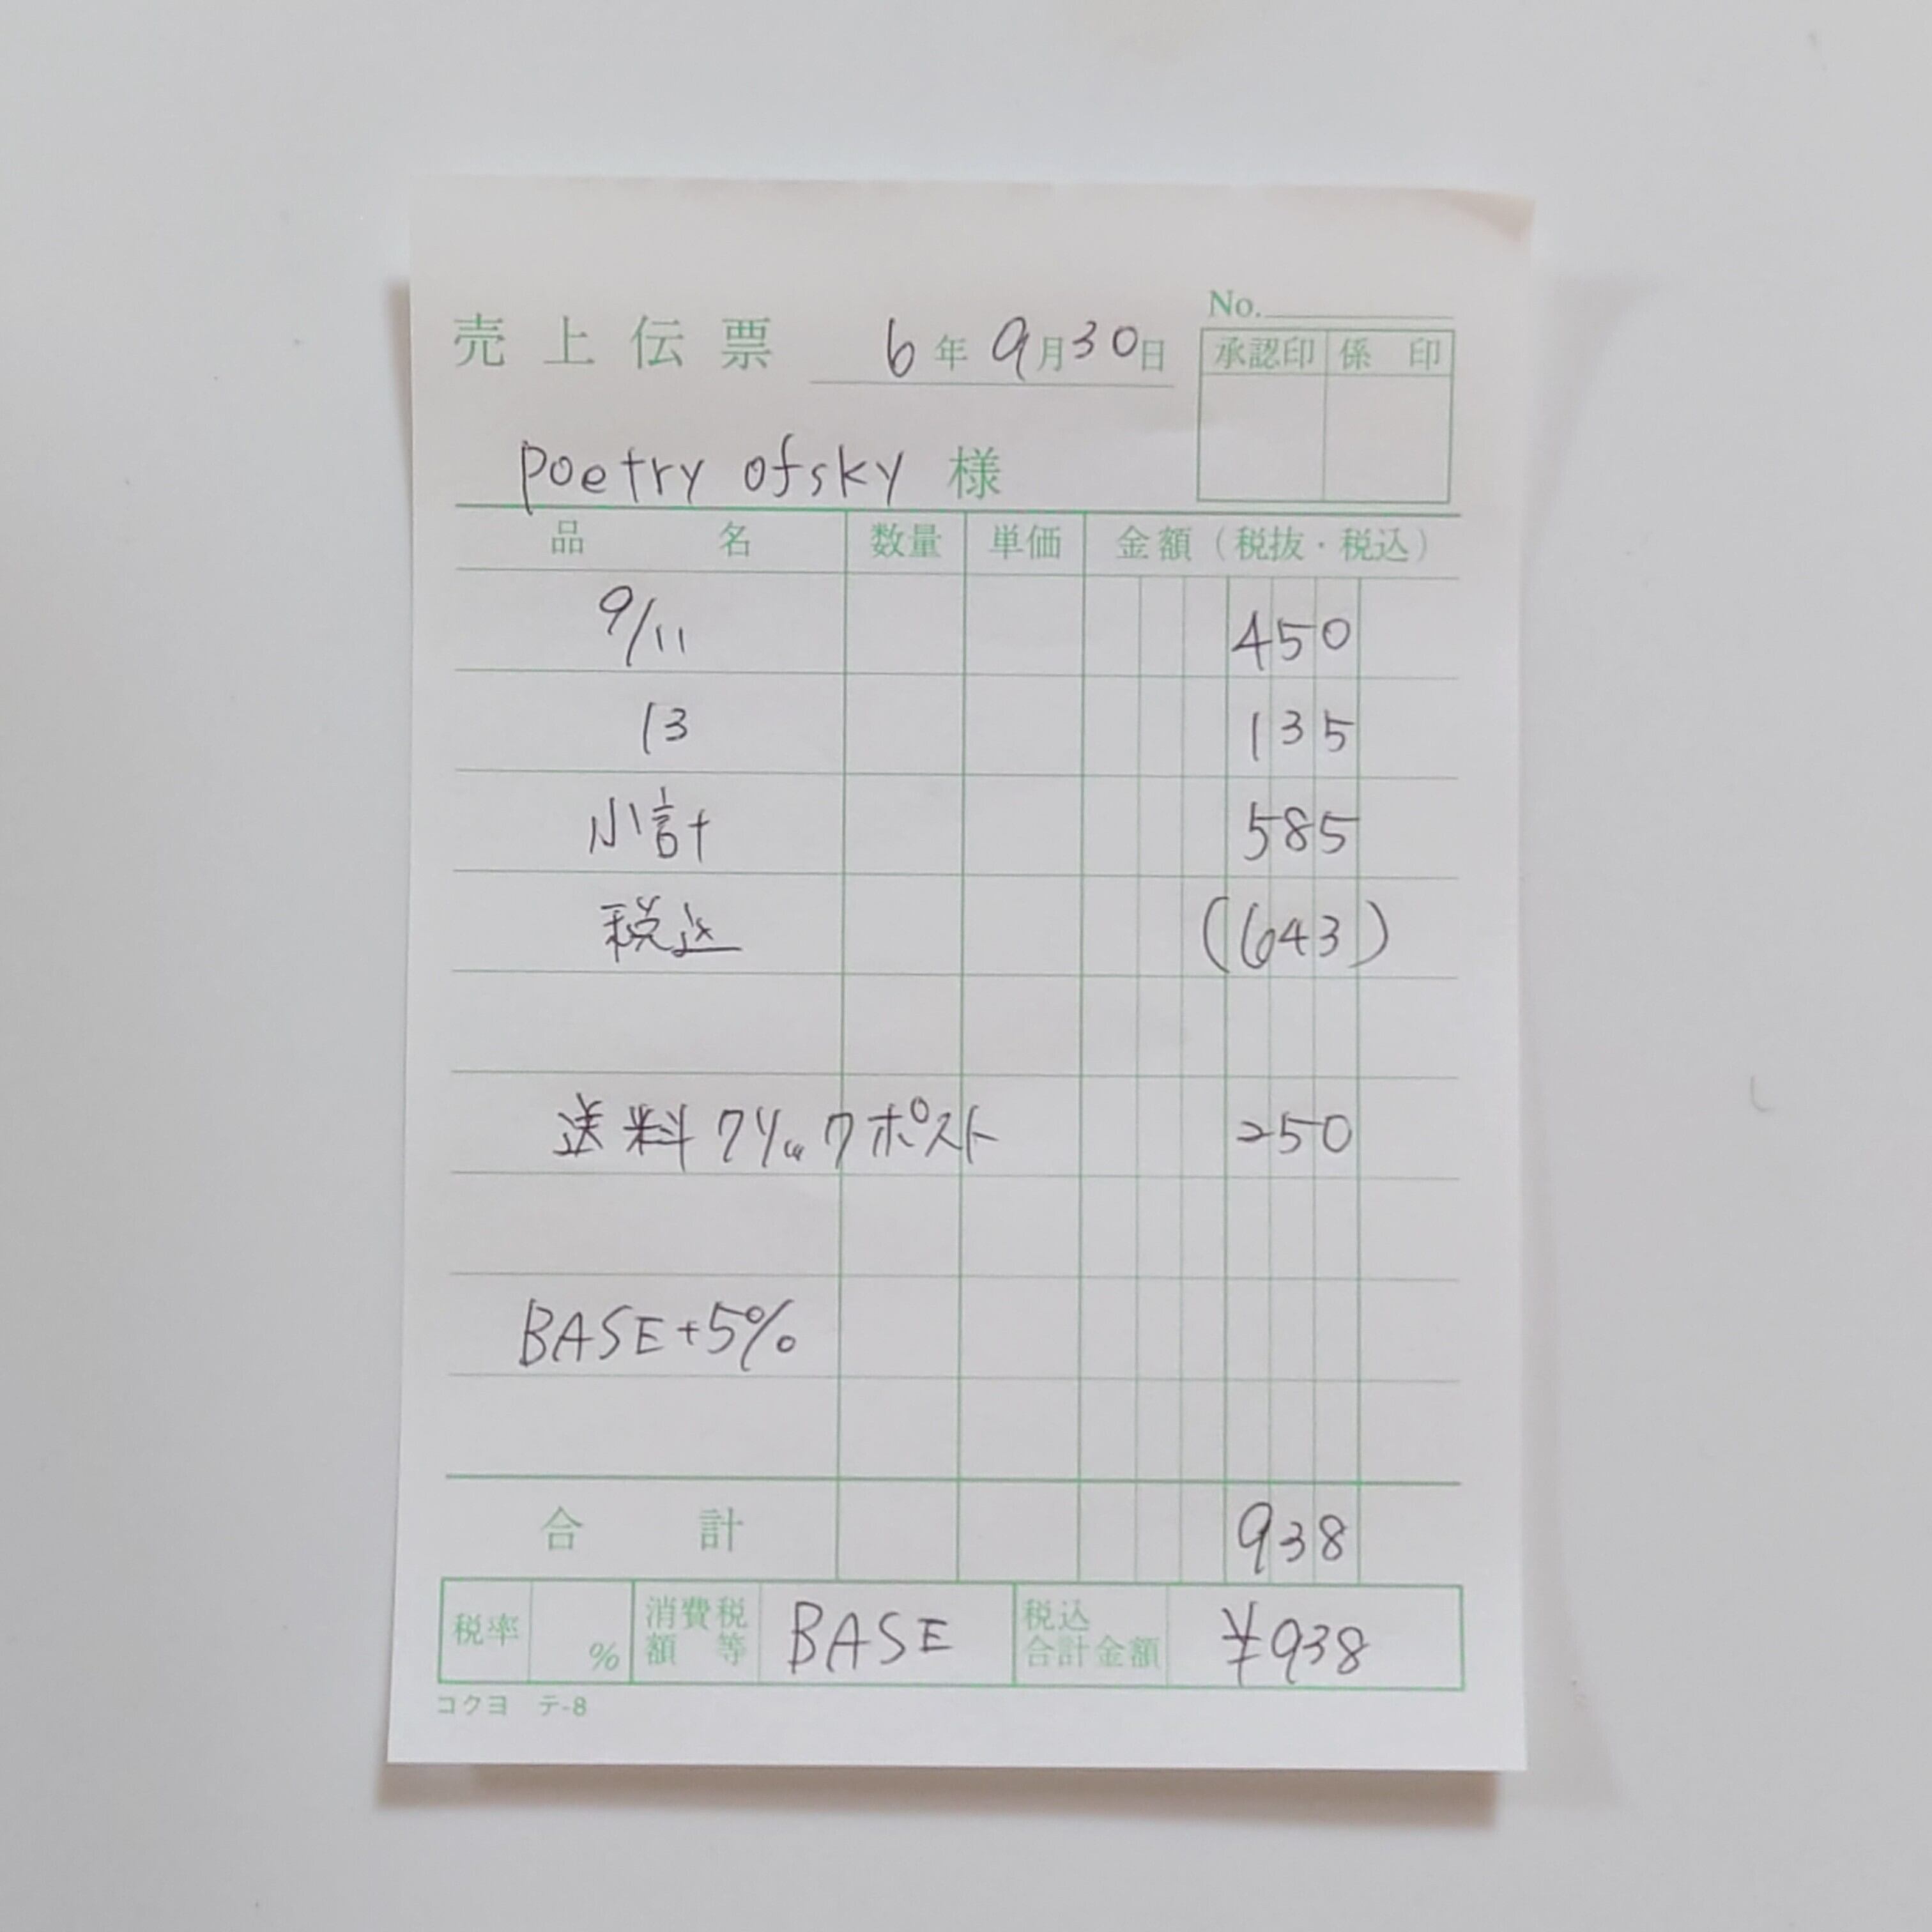 No.
売上伝票 6年9月30日
承認印 係印
poetry ofsky 様
品名 数量 単価 金額(税抜・税込)
9/11 450
13 135
小計 585
税込 (643)
送料 クリックポスト 250
BASE+5%
合計 938
税率 % 消費税額等 BASE 税込合計金額 ¥938
コクヨ テ-8